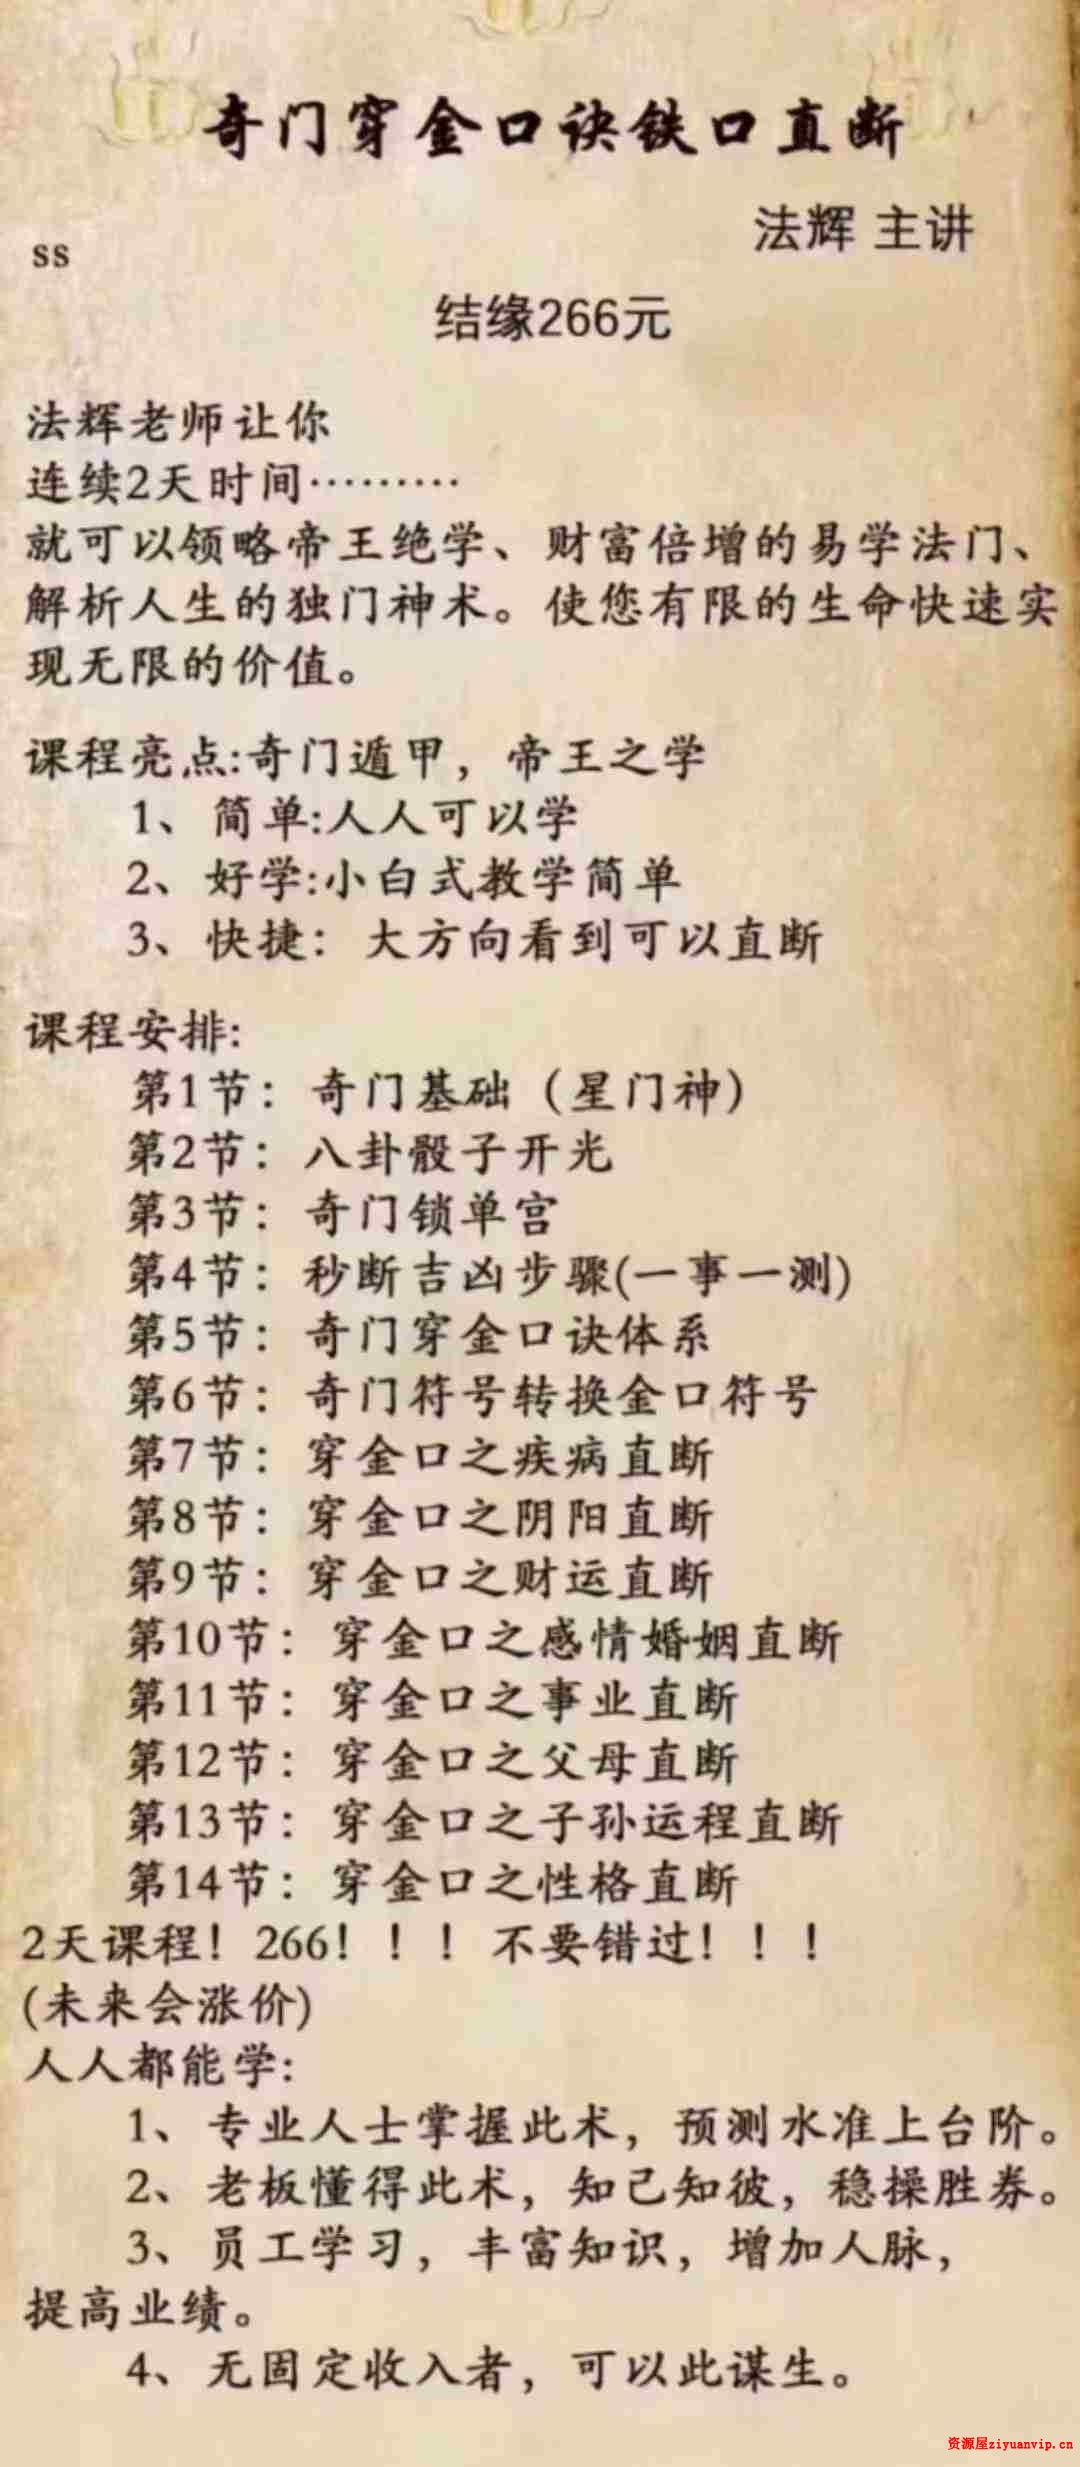 奇门穿金口诀铁口直断
法辉 主讲
ss
结缘266元
法辉老师让你
连续2天时间………
就可以领略帝王绝学、财富倍增的易学法门、
解析人生的独门神术。使您有限的生命快速实
现无限的价值。
课程亮点:奇门遁甲，帝王之学
1、简单:人人可以学
2、好学:小白式教学简单
3、快捷：大方向看到可以直断
课程安排:
第1节：奇门基础（星门神）
第2节：八卦骰子开光
第3节：奇门锁单宫
第4节：秒断吉凶步骤(一事一测)
第5节：奇门穿金口诀体系
第6节：奇门符号转换金口符号
第7节：穿金口之疾病直断
第8节：穿金口之阴阳直断
第9节：穿金口之财运直断
第10节：穿金口之感情婚姻直断
第11节：穿金口之事业直断
第12节：穿金口之父母直断
第13节：穿金口之子孙运程直断
第14节：穿金口之性格直断
2天课程！266！！！不要错过！！！
(未来会涨价)
人人都能学:
1、专业人士掌握此术，预测水准上台阶。
2、老板懂得此术，知己知彼，稳操胜券。
3、员工学习，丰富知识，增加人脉，
提高业绩。
4、无固定收入者，可以此谋生。
资源屋ziyuanvip.cn